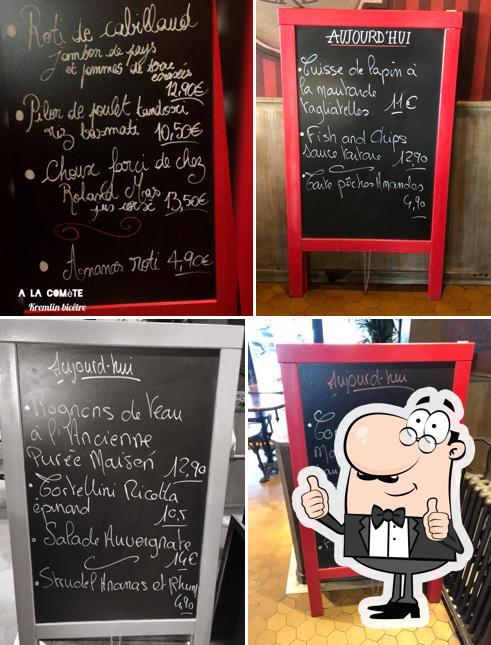 Roti de cabillaud
Jambon de pays
et pommes de terre
écrasées
12,90€
Pilon de poulet tandoori
riz basmati 10,50€
Choux farci de chez
Roland Mras
jus corsé 13,50€
Ananas roti 4,90€
A LA COMèTE
Kremlin bicêtre
AUJOURD'HUI
Cuisse de lapin à
la moutarde
tagliatelles 11€
Fish and Chips
sauce tartare 12,90
Tarte pêches Amandes
4,90
Aujourd-hui
Rognons de Veau
à l'Ancienne
Purée Maison 12,90
Tortellini Ricotta
épinard
10,5
Salade Auvergnate
14€
Strudel Ananas et Rhum
4,90
Aujourd-hui